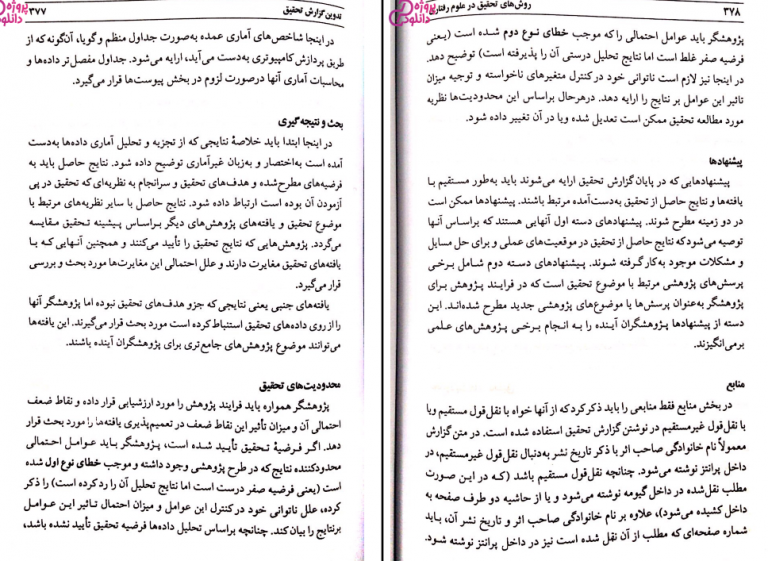 تدوین گزارش تحقیق ۳۷۷
پروژه دانلود
در اینجا شاخص‌های آماری عمده به‌صورت جداول منظم و گویا، آن‌گونه که از
طریق پردازش کامپیوتری به‌دست می‌آید، ارایه می‌شود. جداول مفصل‌تر داده‌ها و
محاسبات آماری آنها درصورت لزوم در بخش پیوست‌ها قرار می‌گیرد.
بحث و نتیجه‌گیری
در اینجا ابتدا باید خلاصهٔ نتایجی که از تجزیه و تحلیل آماری داده‌ها به‌دست
آمده است به‌اختصار و به‌زبان غیرآماری توضیح داده شود. نتایج حاصل باید به
فرضیه‌های مطرح‌شده و هدف‌های تحقیق و سرانجام به نظریه‌ای که تحقیق در پی
آزمودن آن بوده است ارتباط داده شود. نتایج حاصل با سایر نظریه‌های مرتبط با
موضوع تحقیق و یافته‌های پژوهش‌های دیگر براساس پیشینه تحقیق مقایسه
می‌گردد. پژوهش‌هایی که نتایج تحقیق را تأیید می‌کنند و همچنین آنهایی که با
یافته‌های تحقیق مغایرت دارند و علل احتمالی این مغایرت‌ها مورد بحث و بررسی
قرار می‌گیرد.
یافته‌های جنبی یعنی نتایجی که جزو هدف‌های تحقیق نبوده اما پژوهشگر آنها
را از روی داده‌های تحقیق استنباط کرده است مورد بحث قرار می‌گیرند. این یافته‌ها
می‌توانند موضوع پژوهش‌های جامع‌تری برای پژوهشگران آینده باشند.
محدودیت‌های تحقیق
پژوهشگر همواره باید فرایند پژوهش را مورد ارزشیابی قرار داده و نقاط ضعف
احتمالی آن و میزان تأثیر این نقاط ضعف در تعمیم‌پذیری یافته‌ها را مورد بحث قرار
دهد. اگر فرضیهٔ تحقیق تأیید شده است، پژوهشگر باید عوامل احتمالی
محدودکننده نتایج که در طرح پژوهشی وجود داشته و موجب خطای نوع اول شده
است (یعنی فرضیه صفر درست است اما نتایج تحلیل آن را رد کرده است) را ذکر
کرده، علل ناتوانی خود در کنترل این عوامل و میزان احتمال تاثیر این عوامل
برنتایج را بیان کند. چنانچه براساس تحلیل داده‌ها فرضیه تحقیق تأیید نشده باشد،
۳۷۸ روش‌های تحقیق در علوم رفتاری
پروژه دانلود
پژوهشگر باید عوامل احتمالی را که موجب خطای نوع دوم شده است (یعنی
فرضیه صفر غلط است اما نتایج تحلیل درستی آن را پذیرفته است) توضیح دهد.
در اینجا نیز لازم است ناتوانی خود در کنترل متغیرهای ناخواسته و توجیه میزان
تاثیر این عوامل بر نتایج را ارایه دهد. درهرحال براساس این محدودیت‌ها نظریه
مورد مطالعه تحقیق ممکن است تعدیل شده ویا در آن تغییر داده شود.
پیشنهادها
پیشنهادهایی که در پایان گزارش تحقیق ارایه می‌شوند باید به‌طور مستقیم با
یافته‌ها و نتایج حاصل از تحقیق به‌دست‌آمده مرتبط باشند. پیشنهادها ممکن است
در دو زمینه مطرح شوند. پیشنهادهای دسته اول آنهایی هستند که براساس آنها
توصیه می‌شود که نتایج حاصل از تحقیق در موقعیت‌های عملی و برای حل مسایل
و مشکلات موجود به‌کار گرفته شوند. پیشنهادهای دسته دوم شامل برخی
پرسش‌های پژوهشی مرتبط با موضوع تحقیق است که در فرایند پژوهش برای
پژوهشگر به‌عنوان پرسش‌ها یا موضوع‌های پژوهشی جدید مطرح شده‌اند. این
دسته از پیشنهادها پژوهشگران آینده را به انجام برخی پژوهش‌های علمی
برمی‌انگیزند.
منابع
در بخش منابع فقط منابعی را باید ذکر کرد که از آنها خواه با نقل‌قول مستقیم ویا
با نقل‌قول غیرمستقیم در نوشتن گزارش تحقیق استفاده شده است. در متن گزارش
معمولاً نام خانوادگی صاحب اثر با ذکر تاریخ نشر به‌دنبال نقل‌قول غیرمستقیم، در
داخل پرانتز نوشته می‌شود. چنانچه نقل‌قول مستقیم باشد (که در این صورت
مطلب نقل‌شده در داخل گیومه نوشته می‌شود و یا از حاشیه دو طرف صفحه به
داخل کشیده می‌شود)، علاوه بر نام خانوادگی صاحب اثر و تاریخ نشر آن، باید
شماره صفحه‌ای که مطلب از آن نقل شده است نیز در داخل پرانتز نوشته شود.